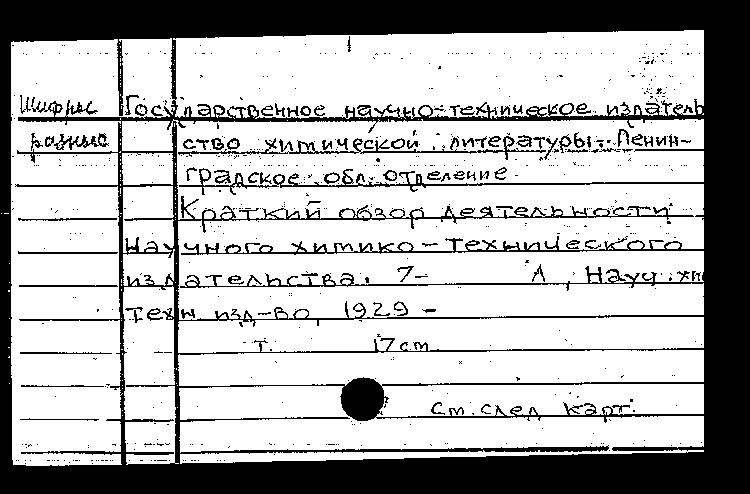 Шифры Государственное научно-техническое издатель
разные ство химической литературы. Ленин-
градское обл. отделение
Краткий обзор деятельности
Научного химико-технического
издательства. 7- Л, Науч. хи
техн изд-во, 1929 -
т. 17 cm
См. след карт.